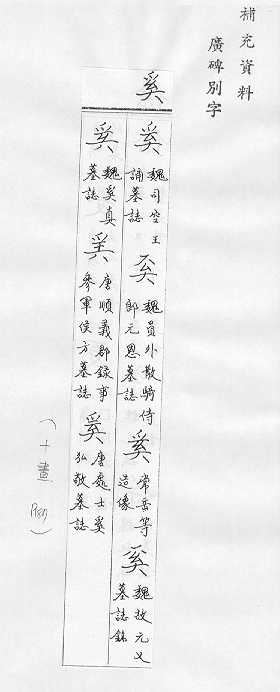 補充資料
廣碑別字
奚
奚 魏司空王誦墓誌
奚 魏員外散騎侍郎元恩墓誌
奚 常岳等造像
奚 魏故元乂墓誌銘
奚 魏奚真墓誌
奚 唐順義郡錄事參軍侯方墓誌
奚 唐處士奚弘敬墓誌
(十畫 )